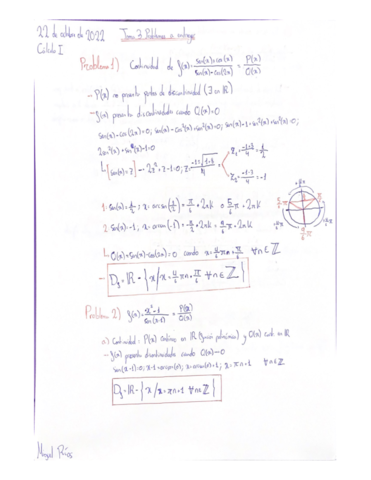 22 de octubre de 2022 Tema 3 Problemas a entregar
Cálculo I
Problema 1) Continuidad de f(x)= sen(x)+cos(x) / sen(x)-cos(2x) = P(x)/Q(x)
- P(x) no presenta puntos de discontinuidad (∃ en ℝ)
- f(x) presenta discontinuidad cuando Q(x)=0
sen(x)-cos(2x)=0; sen(x)-cos²(x)+sen²(x)=0; sen(x)-1+sen²(x)+sen²(x)=0;
2sen²(x)+sen(x)-1=0
[sen(x)=z] → 2z²+z-1=0; z=
z₁=
z₂= = -1
1. sen(x)=½ → x=arcsen(½)= π/6 + 2πk o 5/6 π + 2πk
2. sen(x)=-1; x=arcsen(-1)=
Q(x)=sen(x)-cos(2x)=0 cuando ∀n∈ℤ
Problema 2) f(x)= x²-1 / sen(x-1) = P(x)/Q(x)
a) Continuidad: P(x) continua en ℝ (función polinómica) y Q(x) cont. en ℝ
- f(x) presenta discontinuidad cuando Q(x)=0
sen(x-1)=0; x-1=arcsen(0); x=arcsen(0)+1; x=πn+1 ∀n∈ℤ
D_f=ℝ-{x/x=πn+1 ∀n∈ℤ}
Miguel Ríos